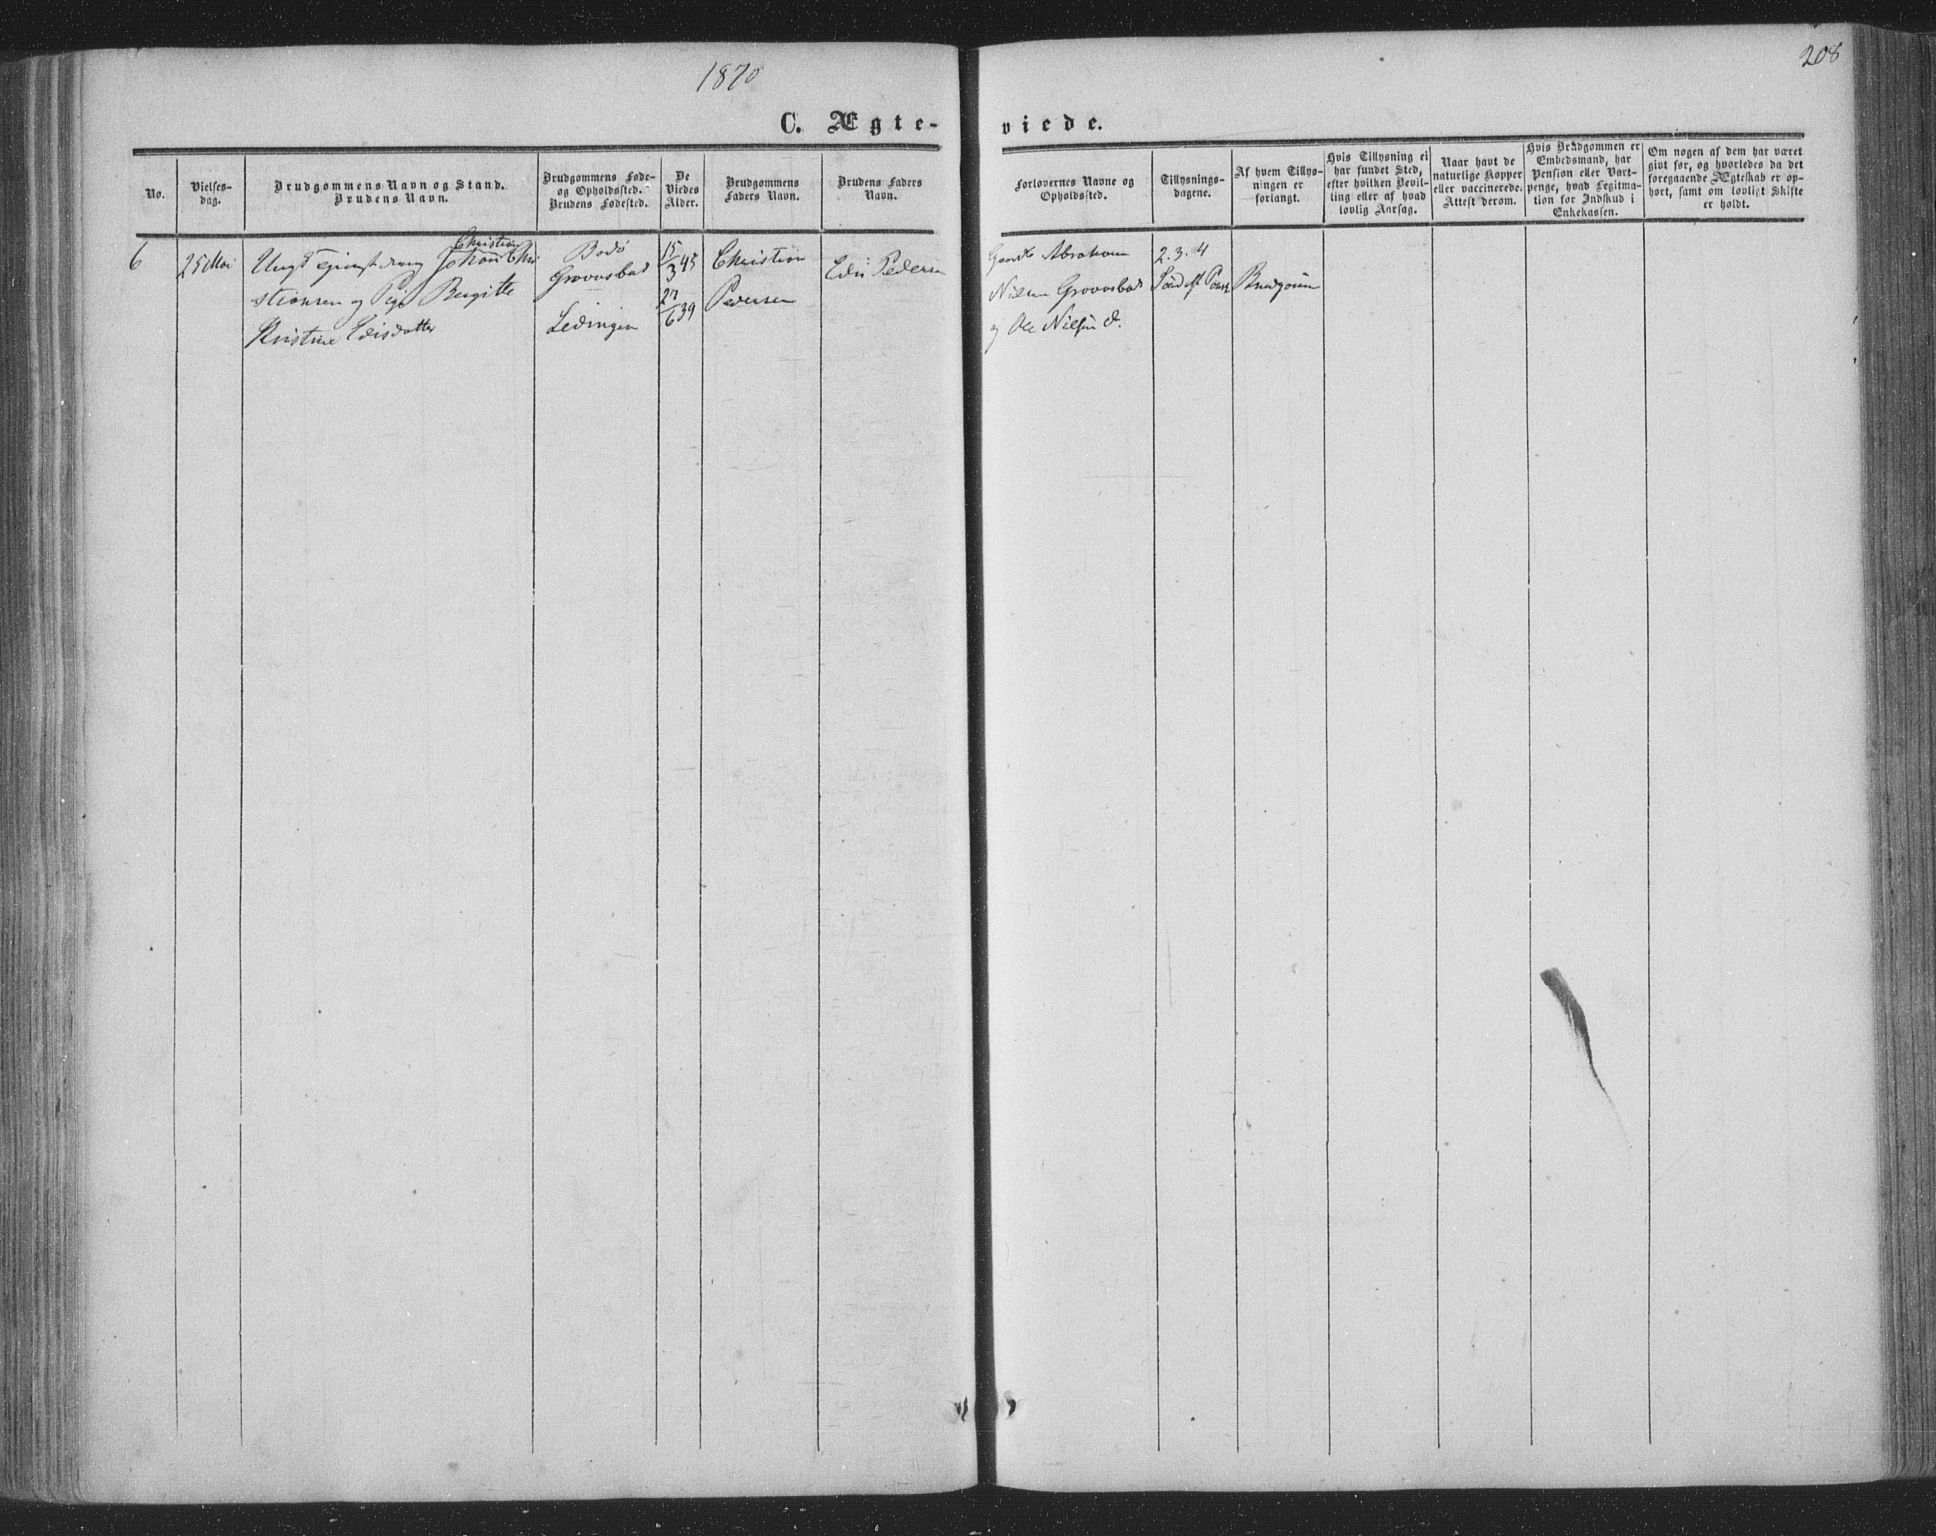 1870
208
C. Ægte-
viede.
No.
Vielses-
dag.
Brudgommens Navn og Stand.
Brudens Navn.
Brudgommens Føde-
og Opholdssted.
Brudens Fødested.
De
Viedes
Alder.
Brudgommens
Faders Navn.
Brudens Faders
Navn.
Forlovernes Navne og
Opholdssted.
Tillysnings-
dagene.
Af hvem Tillys-
ningen er
forlangt.
Hvis Tillysning ei
har fundet Sted,
efter hvilken Bevil-
ling eller af hvad
lovlig Aarsag.
Naar havt de
naturlige Kopper
eller vaccinerede.
Attest derom.
Hvis Brudgommen er
Embedsmand, har
Pension eller Vart-
penge, hvad Legitima-
tion for Indskud i
Enkekassen.
Om nogen af dem har været
givt før, og hvorledes da det
foregaaende Ægteskab er op-
hørt, samt om lovligt Skifte
er holdt.
6
25 Mai
Christian
Ungk Tjenstedreng Johan Chri
stiansen og Pige Bergitte
Kristine Edisdatter
Bodö
Grovasbad
Lødingen
15/3 45
27/6 39
Christian
Pedersen
Edis Pedersen
Gaardb Abraham
Nilsen Grovasbad
og Ole Nilsen d.
2. 3. 4
Sönd. ef. Paask
Brudgom